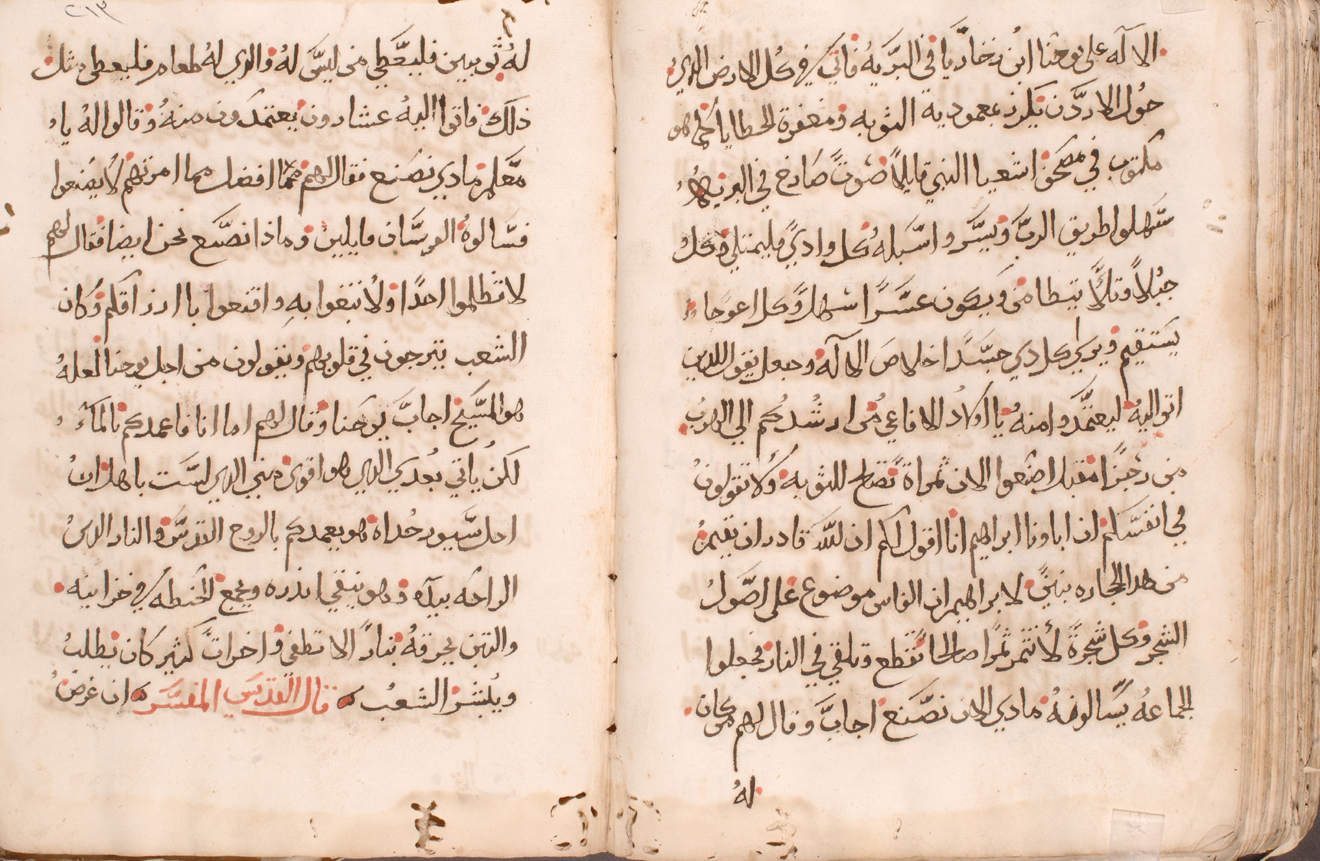 الاله على يوحنا ابن زخاريا في البريه فاتي في كل الارض الذي
حول الاردن يكرز بمعمودية التوبه ومغفرة الخطايا كما هو
مكتوب في مصحف اشعيا النبي قايلاً صوت صارخ في البريه
سهلوا طريق الرب ويسروا سبله كل وادي فليمتلي وكل
جبلاً وتلاً يتطامن ويكون عسراً سهلا وكل اعوجا
يستقيم ويري كل ذي جسداً خلاص الاله وجعل يقول للذين
اتوا اليه ليعتمدوا منه يا اولاد الافاعي من ارشدكم الي الهرب
من رجزاً مقبل اصنعوا الان ثمراة تصلح للتوبه ولا تقولون
في انفسكم ان ابونا ابراهيم انا اقول لكم ان لله قادر ان يقيم
من هدا الحجاره بنين لابراهيم ان الفاس موضوع على اصول
الشجر وكل شجرة لا تثمر ثمراً صالحا تقطع وتلقي في النار فجعلوا
الجماعه يسالونه مادي الان نصنع اجاب وقال لهم من كان
له
٢١٣
له ثوبين فليعطي من ليس له والذي له طعام فليعطي مثل
ذلك فاتوا اليه عشارون يعتمدون منه وقالوا له يا
معلم مادي نصنع فقال لهم مهما افضل مما امرتهم لا يصنعوا
فسالوه الفرسان قايلين وماذا نصنع نحن ايضا فقال لهم
لا تظلموا احداً ولا تبغوا به واقنعوا باارزاقكم وكان
الشعب يترجون في قلوبهم ويقولون من اجل يوحنا لعله
هو المسيح اجاب يوحنا وقال لهم اما انا فاعمدكم بالماء
لكن ياتي بعدي الذي هو اقوي مني الذي لست باهل ان
احل سيور حداه هو يعمدكم بالروح القدس والنار الذي
الراحه بيده وهو ينقي اندره ويجمع الحنطه في خزانيه
والتبن يحرقه بناراً لا تطفي واخرات كثير كان يطلب
ويبشر الشعب قال القديس المفسر ان غرض